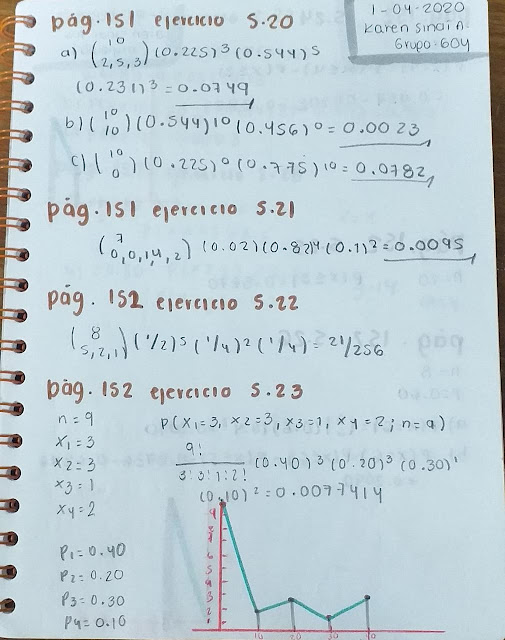 1-04-2020
Karen Sinai A.
Grupo: 604
pág. 151 ejercicio 5.20
a) (10 2,5,3) (0.225)³ (0.544)⁵
(0.231)³ = 0.0749
b) (10 10) (0.544)¹⁰ (0.456)⁰ = 0.0023
c) (10 0) (0.225)⁰ (0.775)¹⁰ = 0.0782
pág. 151 ejercicio 5.21
(7 0,0,1,4,2) (0.02)(0.82)⁴ (0.1)² = 0.0095
pág. 152 ejercicio 5.22
(8 5,2,1) (1/2)⁵ (1/4)² (1/4) = 21/256
pág. 152 ejercicio 5.23
n = 9
x1 = 3
x2 = 3
x3 = 1
x4 = 2
P1 = 0.40
P2 = 0.20
P3 = 0.30
P4 = 0.10
P(x1=3, x2=3, x3=1, x4=2; n=9)
9!
3! 3! 1! 2!
(0.40)³ (0.20)³ (0.30)¹
(0.10)² = 0.0077414
9
6
5
4
3
2
1
10
20
30
40